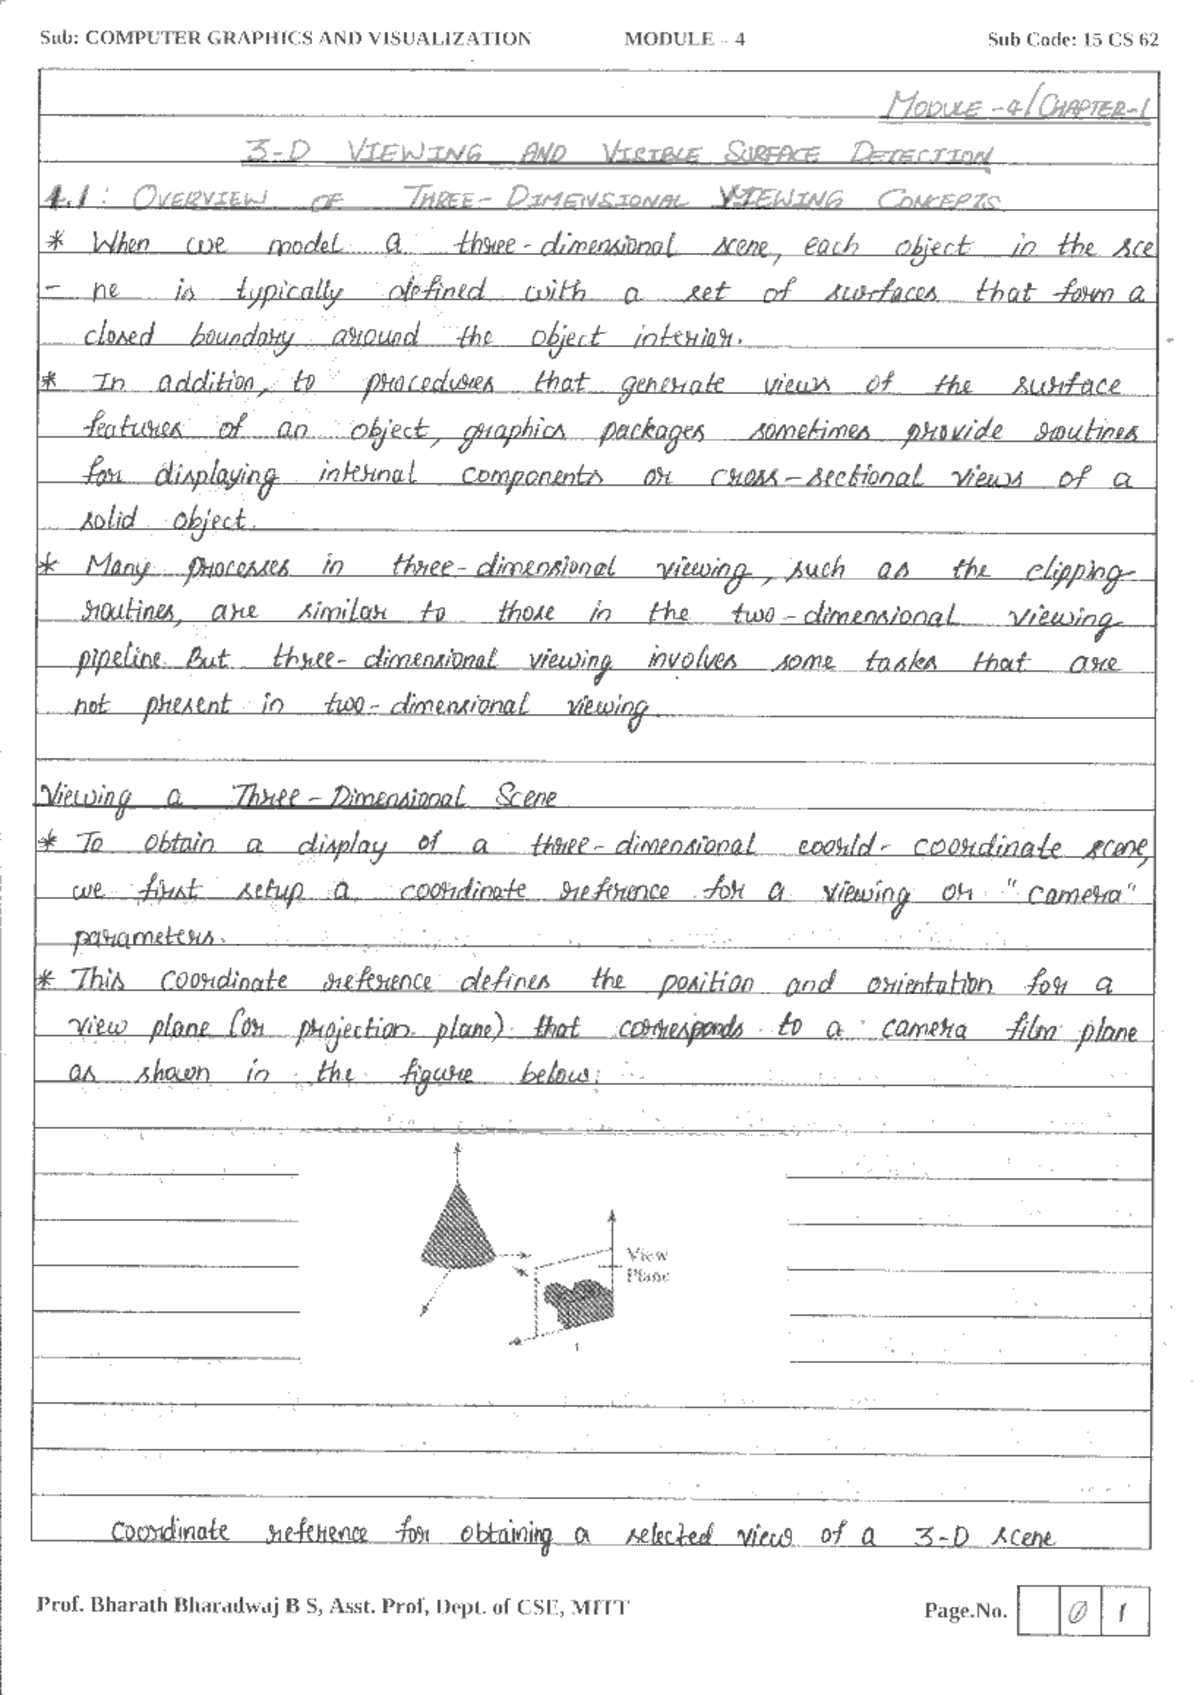 Sub: COMPUTER GRAPHICS AND VISUALIZATION MODULE – 4 Sub Code: 15 CS 62
MODULE -4/CHAPTER-1
3-D VIEWING AND VISIBLE SURFACE DETECTION
1.1: OVERVIEW OF THREE-DIMENSIONAL VIEWING CONCEPTS
* When we model a three-dimensional scene, each object in the sce
- ne is typically defined with a set of surfaces that form a
closed boundary around the object interior.
* In addition, to procedures that generate views of the surface
features of an object, graphics packages sometimes provide routines
for displaying internal components or cross-sectional views of a
solid object.
* Many processes in three-dimensional viewing, such as the clipping
routines, are similar to those in the two-dimensional viewing
pipeline. But three-dimensional viewing involves some tasks that are
not present in two-dimensional viewing.
Viewing a Three-Dimensional Scene
* To obtain a display of a three-dimensional world-coordinate scene,
we first setup a coordinate reference for a viewing or "camera"
parameters.
* This coordinate reference defines the position and orientation for a
view plane (or projection plane) that corresponds to a camera film plane
as shown in the figure below:
View
Plane
Coordinate reference for obtaining a selected view of a 3-D scene
Prof. Bharath Bharadwaj B S, Asst. Prof, Dept. of CSE, MITT Page.No. 0 1